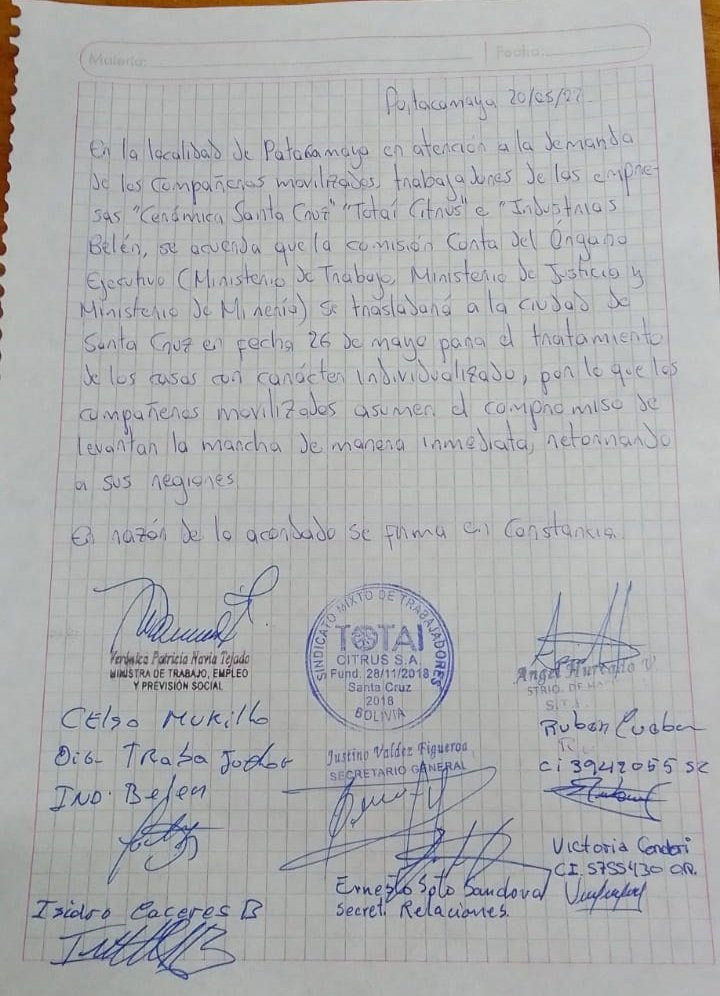 Materia:
Fecha:
Patacamaya 20/05/22
En la localidad de Patacamaya en atención a la demanda
de los compañeros movilizados, trabajadores de las empre-
sas "Cerámica Santa Cruz" "Totaí Citrus" e "Industrias
Belén, se acuerda que la comisión Corta del Órgano
Ejecutivo (Ministerio de Trabajo, Ministerio de Justicia y
Ministerio de Minería) se trasladará a la ciudad de
Santa Cruz en fecha 26 de mayo para el tratamiento
de los casos con carácter individualizado, por lo que los
compañeros movilizados asumen el compromiso de
levantar la marcha de manera inmediata, retornando
a sus regiones.
En razón de lo acordado se firma en constancia.
Verónica Patricia Navia Tejada
MINISTRA DE TRABAJO, EMPLEO
Y PREVISIÓN SOCIAL
SINDICATO MIXTO DE TRABAJADORES
TOTAI
CITRUS S.A.
Fund. 28/11/2018
Santa Cruz
2018
BOLIVIA
Angel Hurtado V
STRIO. DE
Celso Murillo
Dis. Traba Judor
IND. Belen
Justino Valdez Figueroa
SECRETARIO GANERAL
Ruben
ci 3942055 SZ
Victoria Condori
CI. 5755430 OR.
Ernesto Soto Sandoval
Secret. Relaciones.
Isidro Caceres B